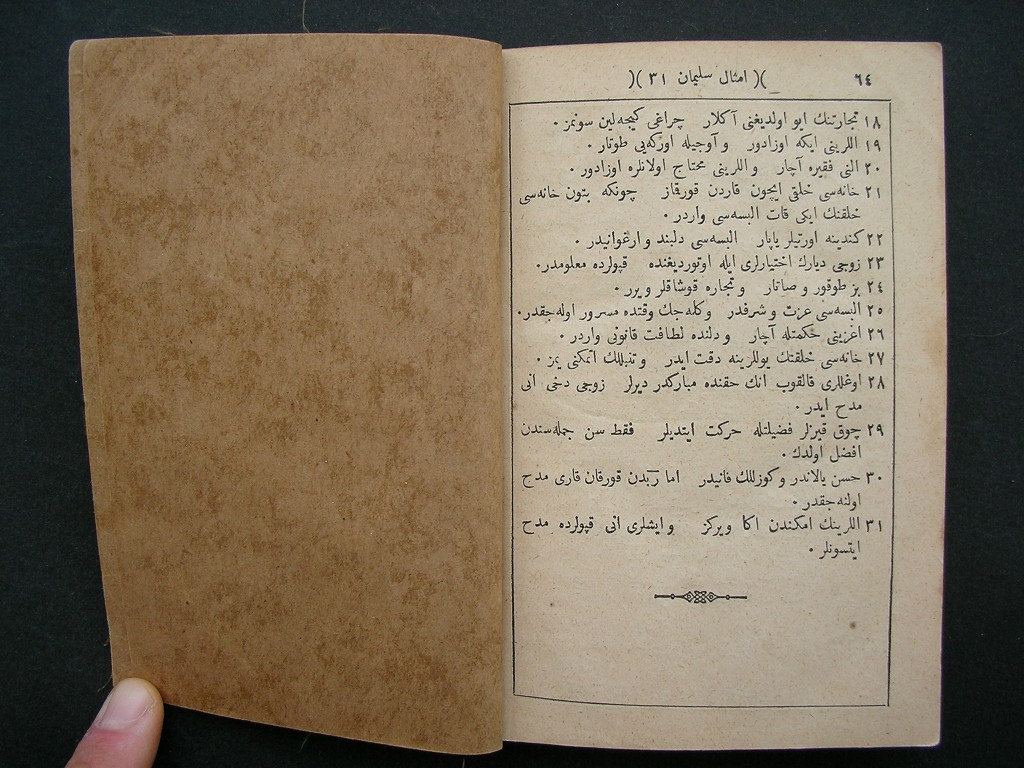 ٦٤ )( امثال سلیمان ٣١ )(
١٨ تجارتنك ایو اولدیغنی آكلار چراغی كیجه‌لین سونمز ٠
١٩ اللرینی ایكه اوزادور و آوجیله اوركه‌یی طوتار ٠
٢٠ النی فقیره آچار و اللرینی محتاج اولانلره اوزادور ٠
٢١ خانه‌سی خلقی ایچون قاردن قورقماز چونكه بتون خانه‌سی
خلقنك ایكی قات البسه‌سی واردر ٠
٢٢ كندینه اورتیلر یاپار البسه‌سی دلبند و ارغوانیدر ٠
٢٣ زوجی دیارك اختیارلری ایله اوتوردیغنده قپولرده معلومدر ٠
٢٤ بز طوقور و صاتار و تجاره قوشاقلر ویرر ٠
٢٥ البسه‌سی عزت و شرفدر و كله‌جك وقتده مسرور اوله‌جقدر ٠
٢٦ اغزینی حكمتله آچار و دلنده لطافت قانونی واردر ٠
٢٧ خانه‌سی خلقنك یوللرینه دقت ایدر و تنبللك اتمكنی یمز ٠
٢٨ اوغللری قالقوب انك حقنده مباركدر دیرلر زوجی دخی انی
مدح ایدر ٠
٢٩ چوق قیزلر فضیلتله حركت ایتدیلر فقط سن جمله‌سندن
افضل اولدك ٠
٣٠ حسن یالاندر و كوزللك فانیدر اما ربدن قورقان قاری مدح
اولنه‌جقدر ٠
٣١ اللرینك امكندن اكا ویركز و ایشلری انی قپولرده مدح
ایتسونلر ٠